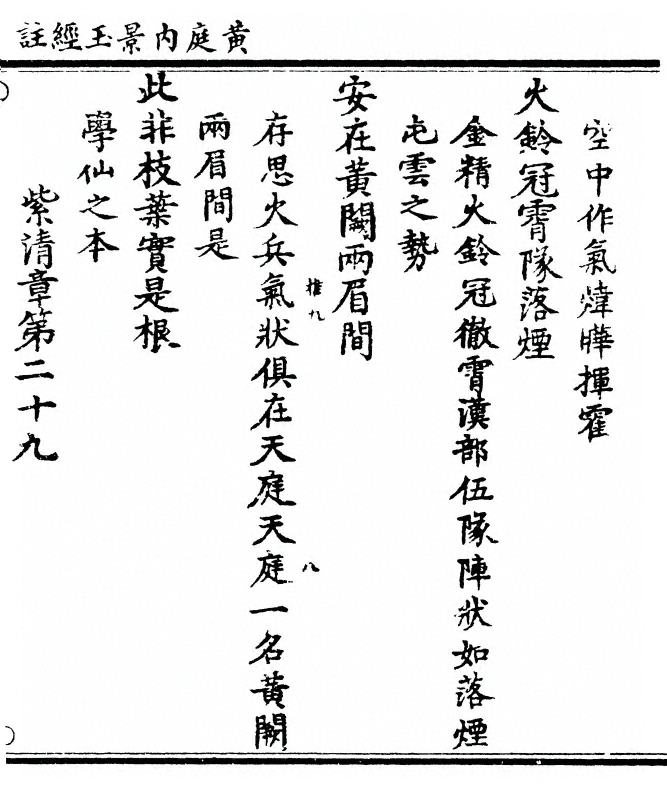 黃庭內景玉經註
空中作氣煒曄揮霍
火鈴冠霄隊落煙
金精火鈴冠徹霄漢部伍隊陣狀如落煙
屯雲之勢
安在黃闕兩眉間
存思火兵氣狀俱在天庭天庭一名黃闕
兩眉間是
此非枝葉實是根
學仙之本
紫清章第二十九